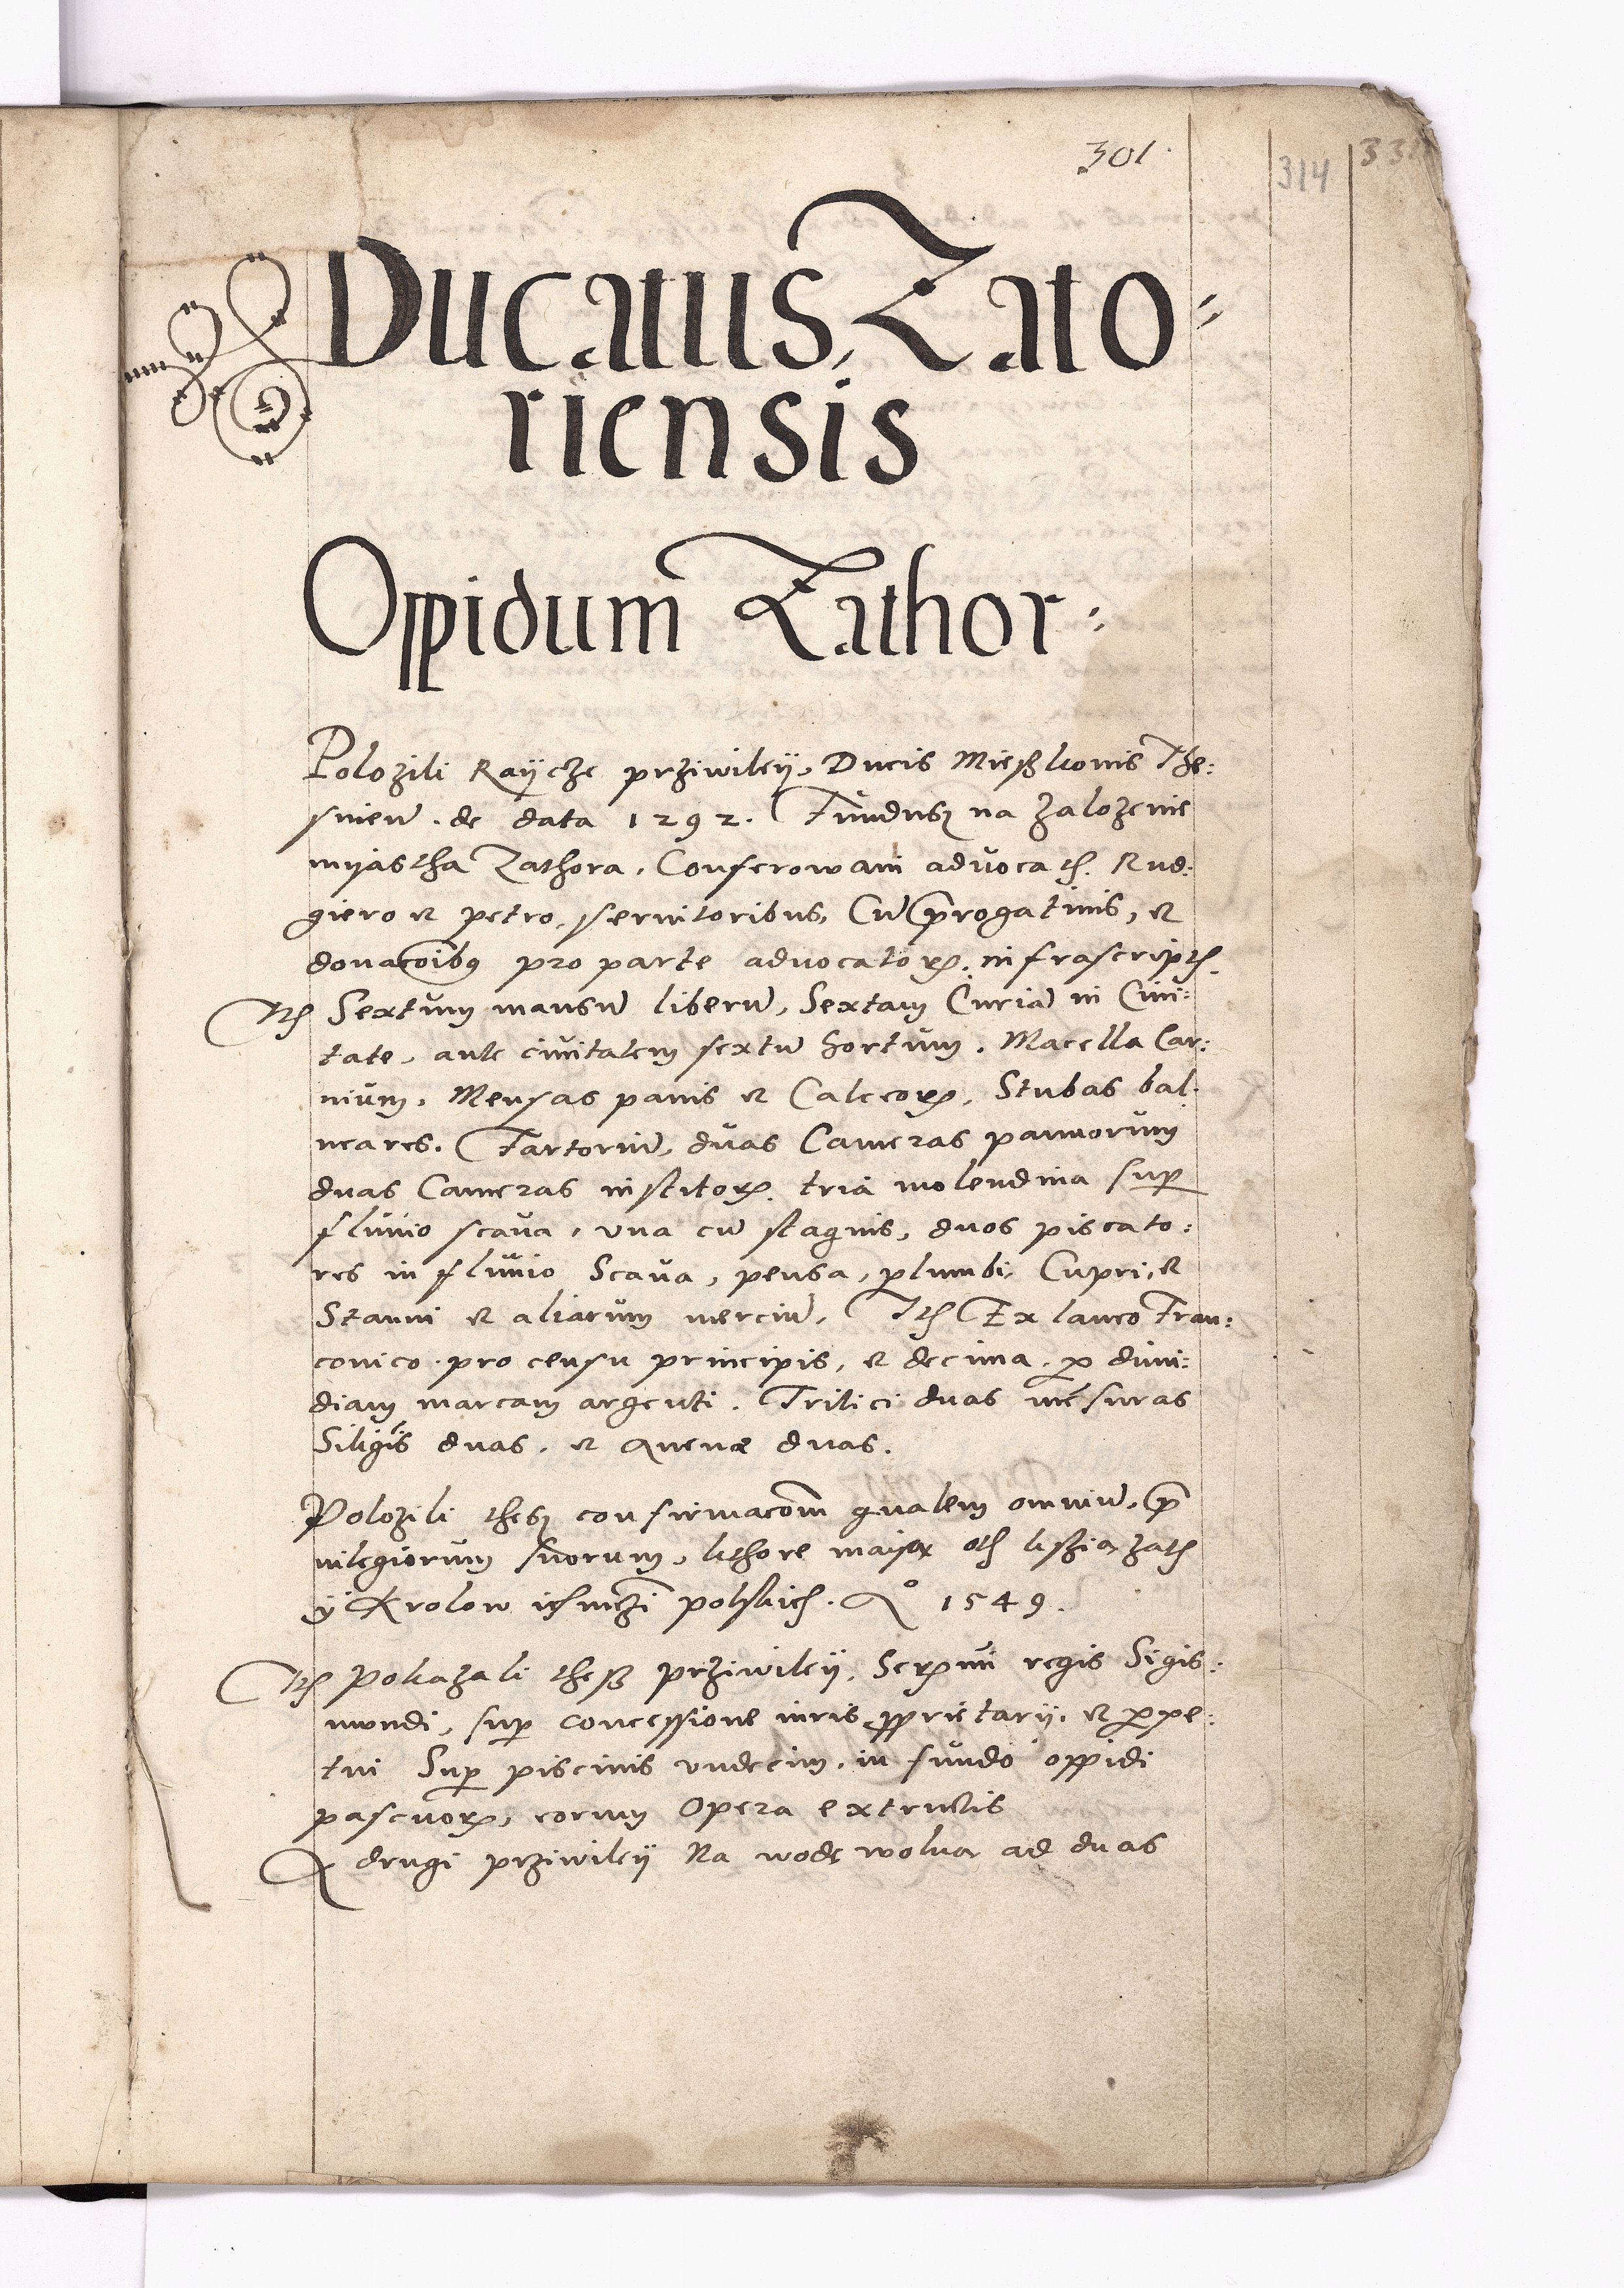 301
314
33
Ducatus Zato=
riensis
Oppidum Zathor:
Polozili Raÿcze prziwileÿ, Ducis Mieszkonis The:
sinen̄. de data 1292. Fundusz na zalozenie
myastha Zathora, Conferowani advocath. Rud:
giero et petro, servitoribus, Cū p̄rogatiuis, et
donacoībꝰ pro parte aduocatoꝝ. infrascripth.
Ith Sextum mansū liberū, Sextam Curiā in Ciui:
tate, ante ciuitatem sextū hortum. Macella Car:
nium, Mensas panis et Calceoꝝ, Stubas bal:
neares. Fartoriū, duas Cameras pannorum
duas Cameras institoꝝ. tria molendina suꝑ
fluuio scaua, vna cū stagnis, duos piscato:
res in fluuio Scaua, pensa, plumbi, Cupri, et
Stanni et aliarum merciū. Ith Ex laneo Fran:
conico pro censu principis, et decima, ꝑ dimi:
diam marcam argenti. Tritici duas mēsuras
Siligīs duas, et Auenæ duas.
Polozili thesz confirmacōm gnalem omniū, p̄
uilegiorum suorum, kthore maią oth
ÿ Krolow polskich. Aº 1549.
Ith Pokazali thesz prziwileÿ, Serꝫmi regis Sigis:
mundi, suꝑ concessione iuris ꝓprietarÿ, et ꝑpe:
tui Suꝑ piscinis vndecim, in fundo oppidi
pascuoꝝ, eorum Opera extructis
A drugi prziwileÿ Na wodę wolną ad duas